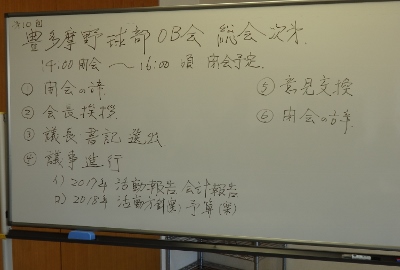 豊多摩野球部OB会 総会次第
14:00 開会 〜 16:00頃 閉会予定
① 開会の辞
② 会長挨拶
③ 議長 書記 選出
④ 議事進行
イ) 2017年 活動報告 会計報告
ロ) 2018年 活動方針(案) 予算(案)
⑤ 意見交換
⑥ 閉会の辞